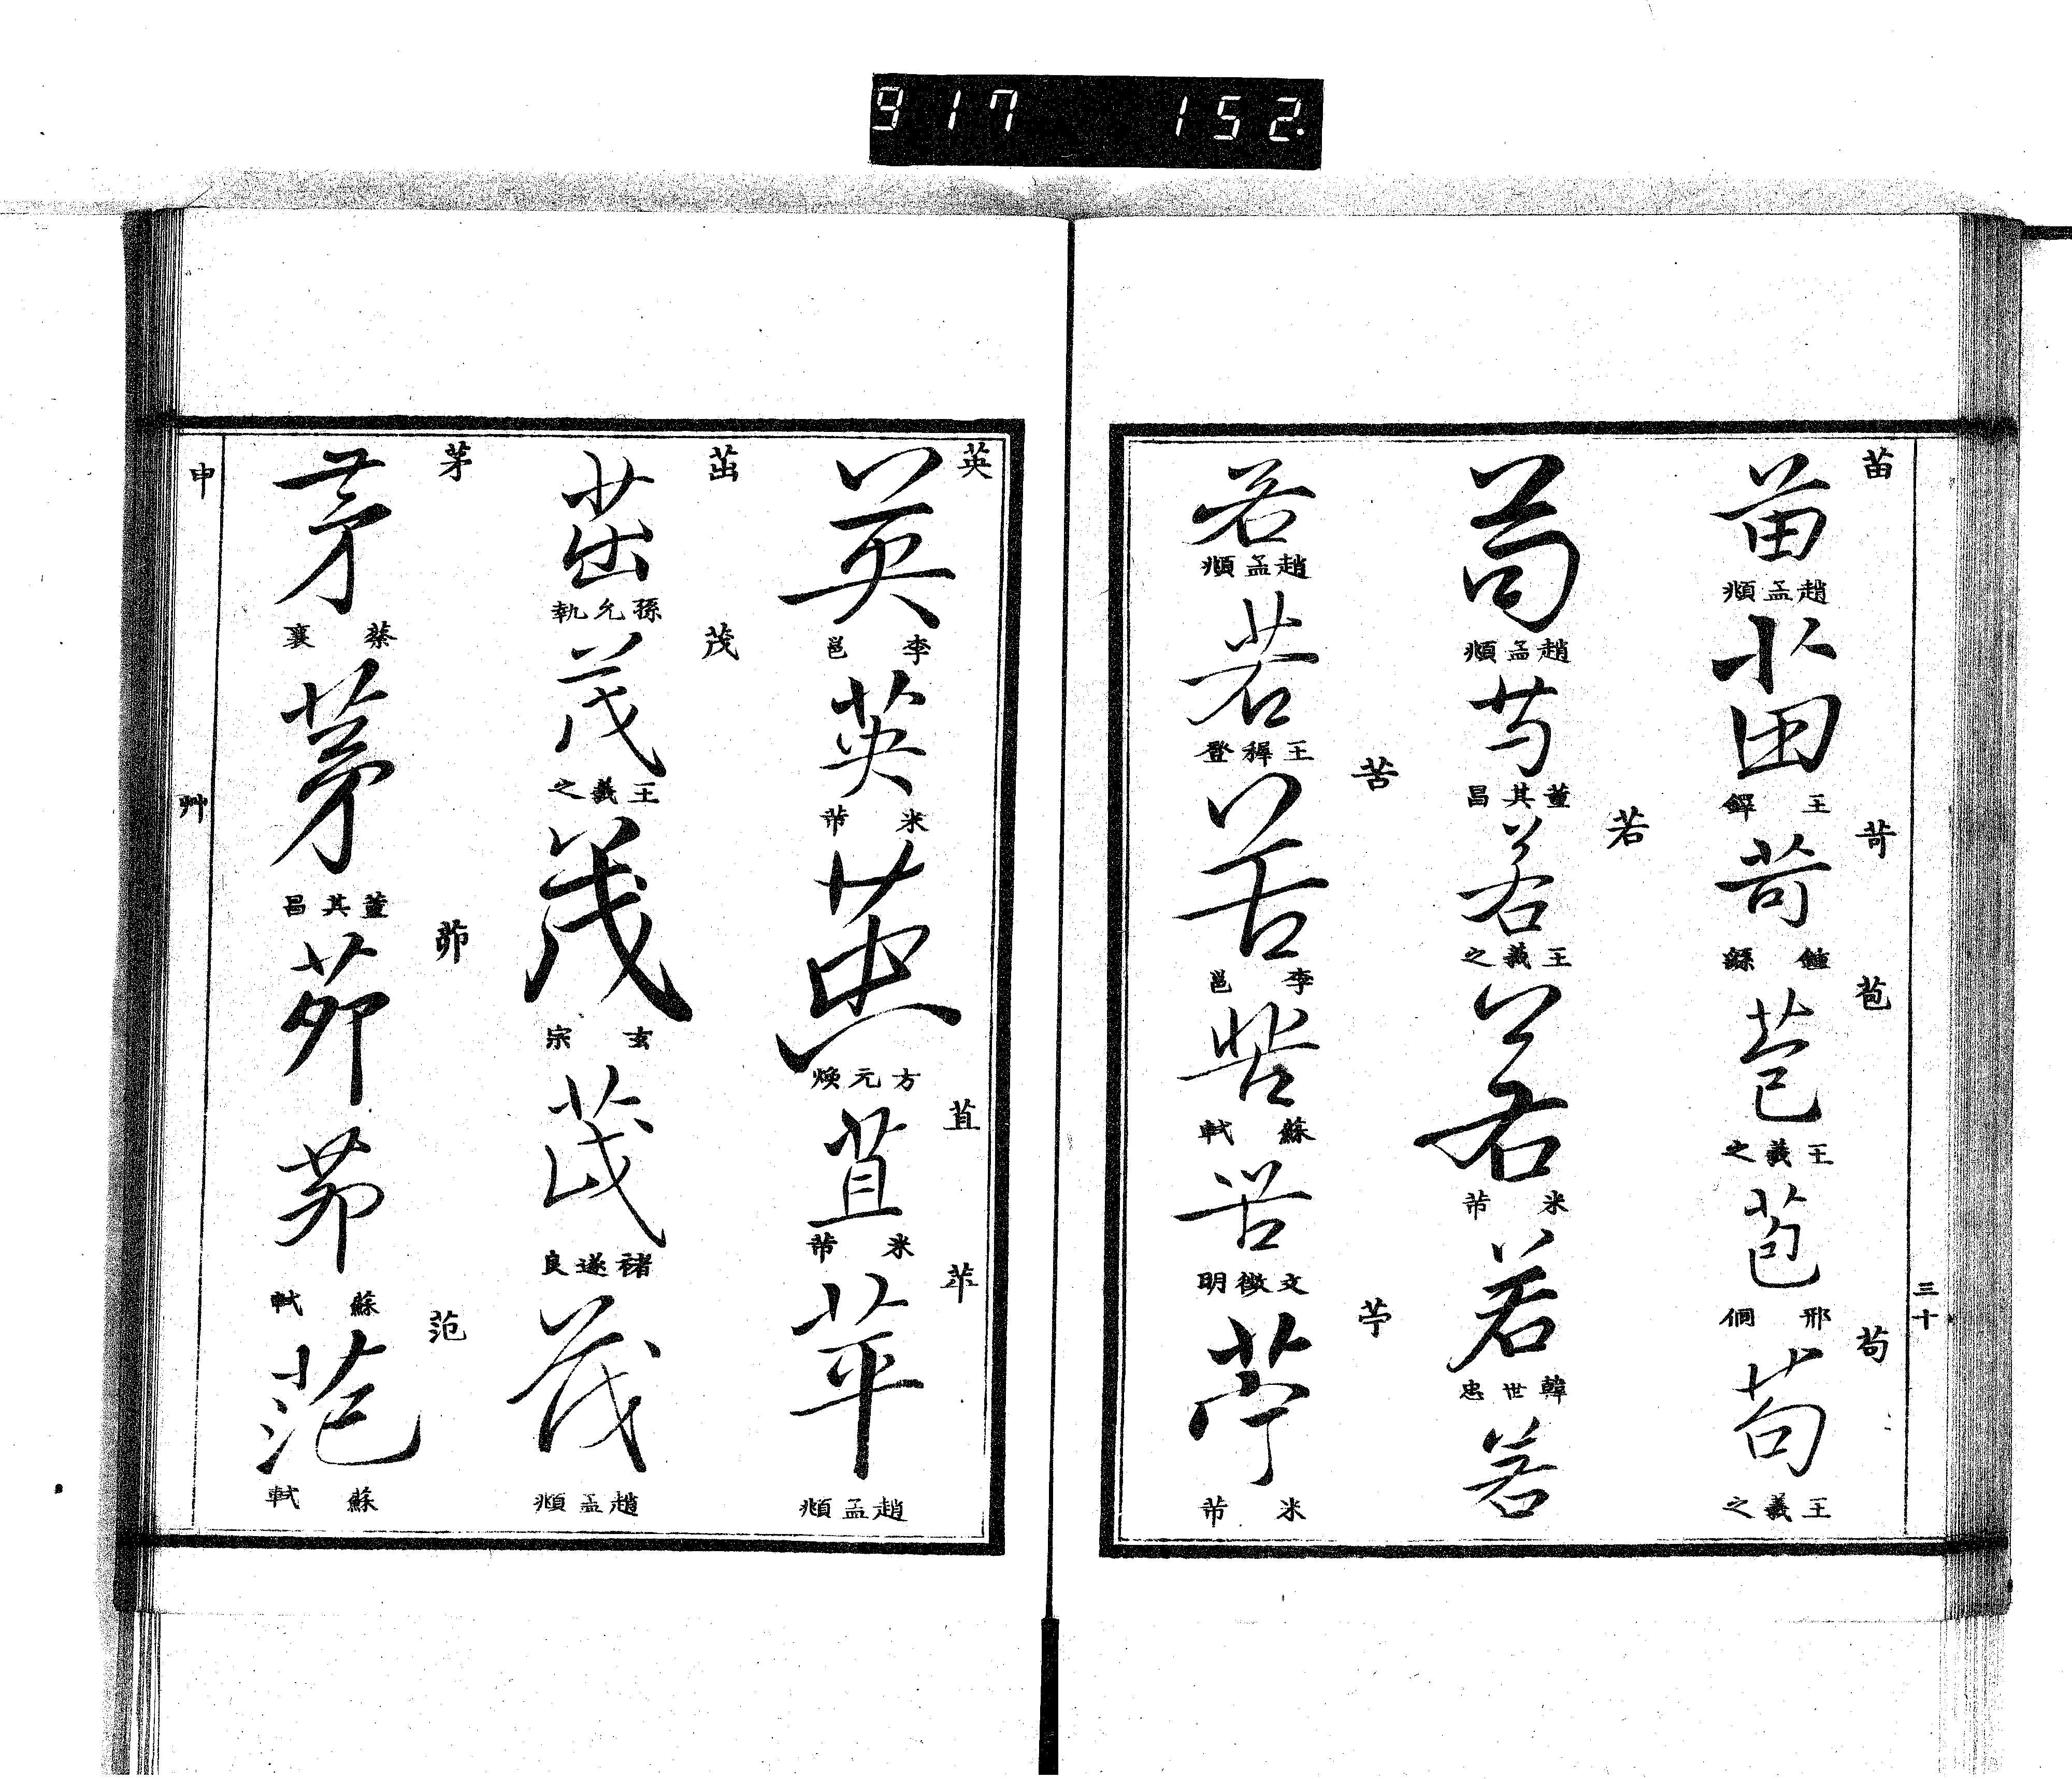 917 152.
三十
苗
苗
趙孟頫
苗
王鐸
苛
苛
鍾繇
苞
苞
王羲之
苞
邢侗
苟
苟
王羲之
苟
趙孟頫
芶
董其昌
若
若
王羲之
若
米芾
若
韓世忠
若
若
趙孟頫
若
王穉登
苦
苦
李邕
苦
蘇軾
苦
文徵明
苧
苧
米芾
英
英
李邕
英
米芾
英
方元煥
苴
苴
米芾
苹
苹
趙孟頫
茁
茁
孫允執
茂
茂
王羲之
茂
玄宗
茂
褚遂良
茂
趙孟頫
茅
茅
蔡襄
茅
董其昌
茆
茆
茆
蘇軾
范
范
蘇軾
申
艸